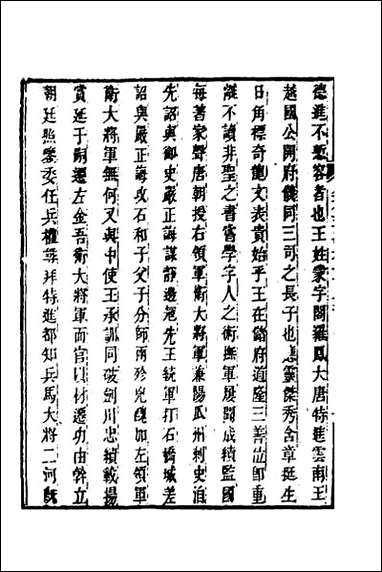 德進不慙容者也王姓蒙字閣羅鳳大唐特進雲南王
越國公開府儀同三司之長子也應靈傑秀含章挺生
日角標奇龍文表貴始乎王在儲府道隆三善位卽重
離不讀非聖之書嘗學字人之術撫軍屢聞成績監國
每著家聲唐朝授右領軍衛大將軍兼陽瓜州刺史洎
先詔與御史嚴正誨謀靜邊寇先王統軍打石橋城差
詔與嚴正誨攻石和子父子分師兩殄兇醜加左領軍
衛大將軍無何又與中使王承訓同破劍川忠績載揚
賞延于嗣遷左金吾衛大將軍而官以材遷功由幹立
朝廷照鑒委任兵權尋拜特進都知兵馬大將二河旣